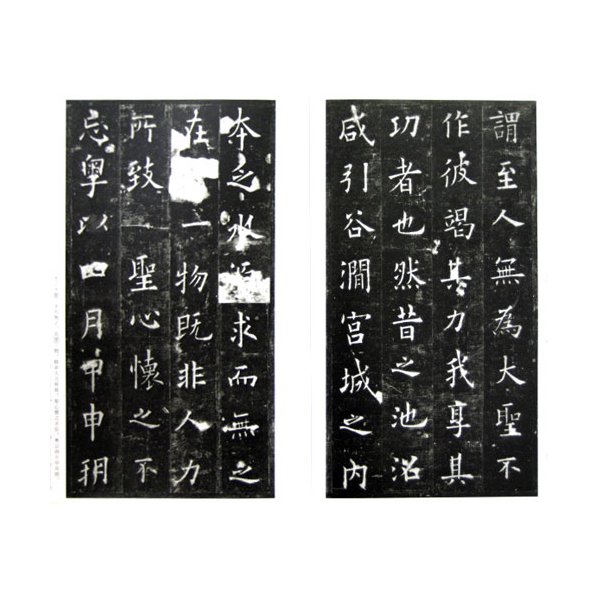 謂至人無為大聖不
作彼竭其力我享其
功者也然昔之池沼
咸引谷澗宮城之內
夲乏水源求而無之
在一物既非人力
所致聖心懷之不
忘粵以四月甲申朔